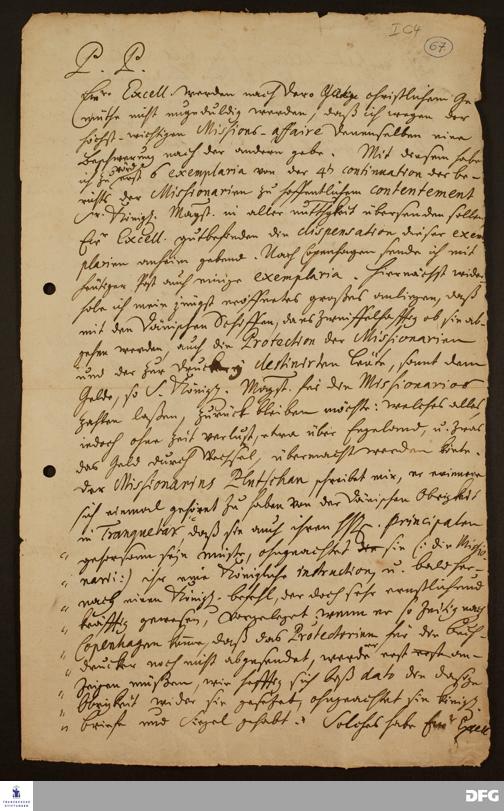 I C 4
67
P. P.
Eur. Excell. werden nach dero christlichem Ge-
müthe nicht ungeduldig werden, daß ich wegen der
höchst-wichtigen Missions-affaire denenselben eine
Beschwerung nach der andern gebe. Mit diesem habe
ich zu 6 exemplaria von der 4t continuation der be-
richte der Missionarien zu hoffentlichem contentement
Sr. Königl. Mayst. in aller übersenden sollen
Eur Excell. gutbefinden die dispensation dieser exem
plarien anheim gebend. Nach Copenhagen sende ich mit
heutiger Post auch einige exemplaria. Hiernächst wieder
hole ich mein jüngst eröffnetes großes anliegen, daß
mit den Dänischen Schiffen, da es zweiffelhafftig ob sie ab-
gehen werden, auch die Protection der Missionarien
und der zur Druckerey destinirten Leute, samt dem
Gelde, so S. Königl. Mayst. für die Missionarios
zahlen laßen, zurück bleiben möchte: welches alles
jedoch ohne Zeit verlust, etwa über Engeland, u. zwar
das Geld durch Wechsel, übermacht werden könte.
Der Missionarius Plutschau schreibet mir, er erinnere
sich einmal gehöret zu haben von der Dänischen Obrigkeit
in Tranquebar, daß sie auch ihren Principalen
gehorsam sein müste, ohngeachtet sie (: die Missio
narii :) eine Königliche instruction, u. bald her-
nach einen Königl. befehl, der doch sehr ernstlich und
kräfftig gewesen, vorgeleget; wenn er so zeitig nach
Copenhagen käme, daß das Protectorium für die Buch-
drucker noch nicht abgesendet, werde erst an-
zeigen müßen, wie hefftig sich dato die dasige
Obrigkeit wider sie gesetzet, ohngeachtet sie Königl.
briefe und Siegel gehabt. Solches habe Eur Excell
FRANCKESCHE STIFTUNGEN
DFG